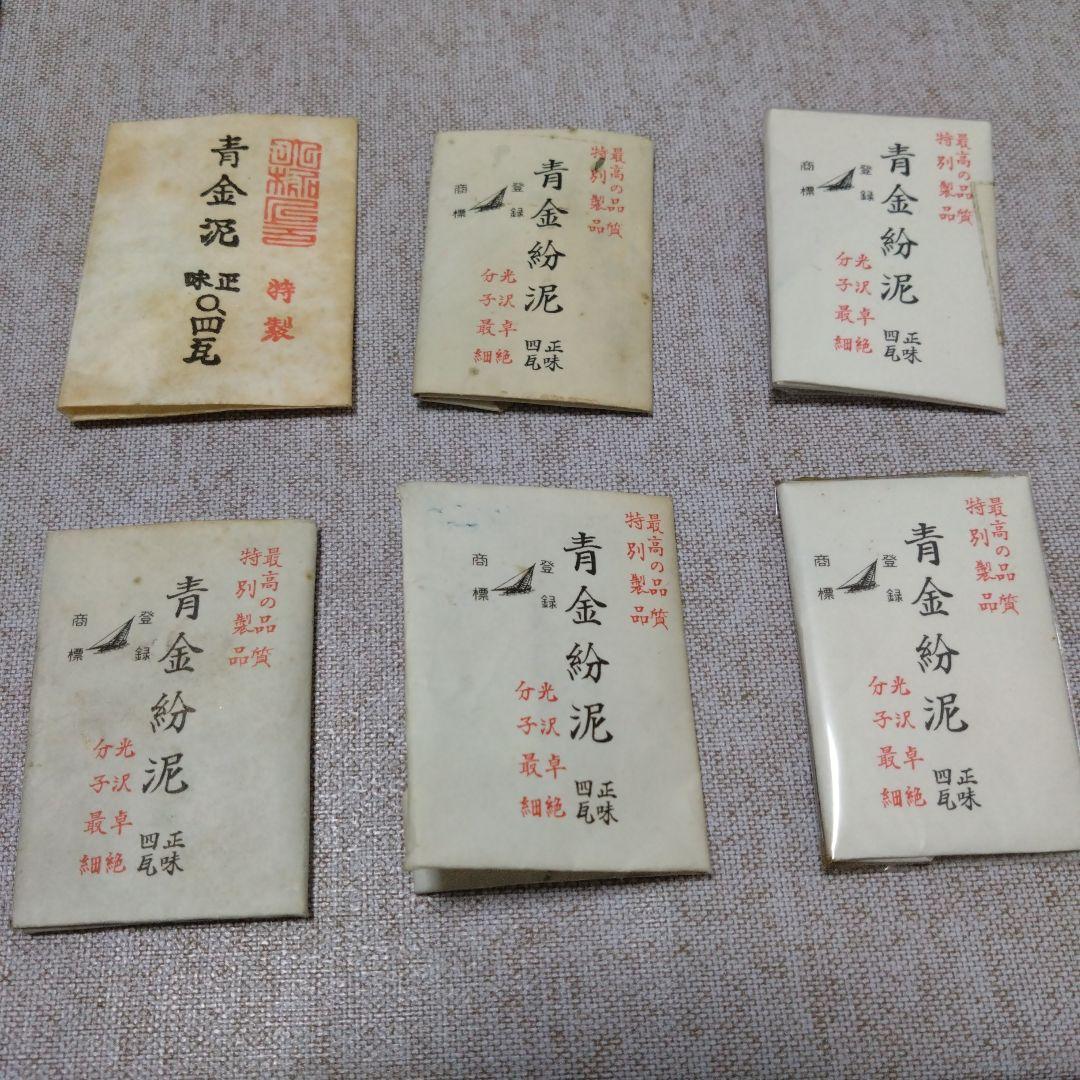 特製
青金泥
正味
0.四瓦
最高の品質
特別製品
青金紛泥
登録
商標
光沢卓絶
分子最細
正味
四瓦
最高の品質
特別製品
青金紛泥
登録
商標
光沢卓絶
分子最細
正味
四瓦
最高の品質
特別製品
青金紛泥
登録
商標
光沢卓絶
分子最細
正味
四瓦
最高の品質
特別製品
青金紛泥
登録
商標
光沢卓絶
分子最細
正味
四瓦
最高の品質
特別製品
青金紛泥
登録
商標
光沢卓絶
分子最細
正味
四瓦